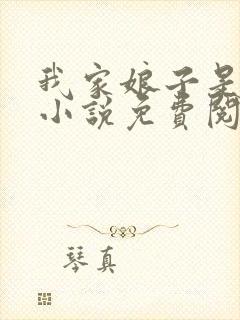 我家娘子是
小说免費閱
琴真